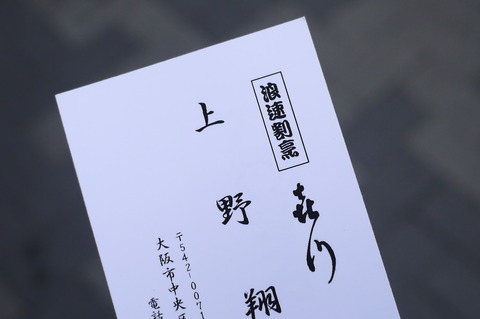 浪速割烹
㐂川
上野翔
〒542-0071
大阪市中央区
電話